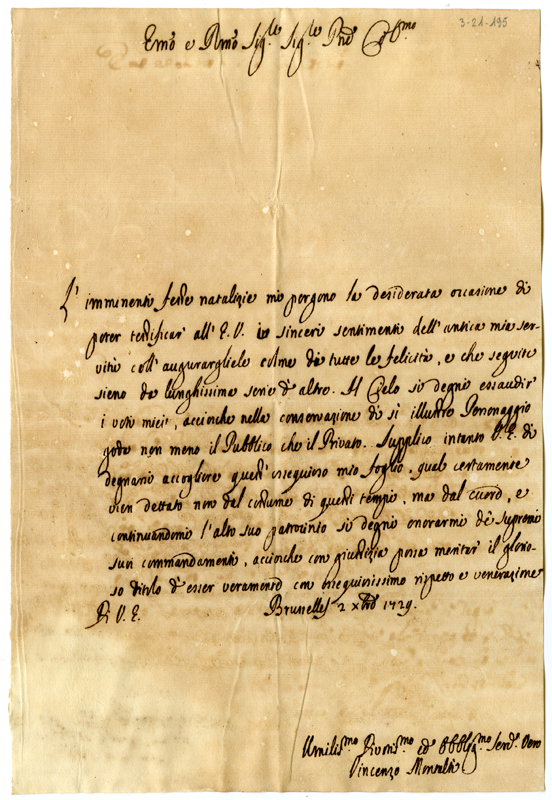 3-21-195
Emo e Rmo Sig.le Sig.le Pnẽ Col.mo
L' imminenti feste natalizie mi porgono la desiderata occasione di
poter testificar' all' E. V. i sinceri sentimenti dell' antica mia ser-
vitù coll' augurargliele colme di tutte le felicità, e che seguite
sieno da lunghissima serie d' altre. Il Cielo si degni essaudir'
i voti miei, acciocche nella conservazione di sì illustre Personaggio
goda non meno il Pubblico che il Privato. Supplico intanto V. E. di
degnarsi accogliere quest' ossequioso mio foglio, qual certamente
vien dettato non dal costume di questi tempi, ma dal cuore, e
continuandomi l'alto suo patrocinio si degni onorarmi de' supremi
suoi commandamenti, acciocche con giustizia possa meritar' il glorio-
so titolo d' esser veramente con ossequiosissimo rispetto e venerazione
Di V. E. Brusselles 2 xbre 1729.
Umilis.mo Divotis.mo ed Obblig.mo Serv.e Vero
Vincenzo